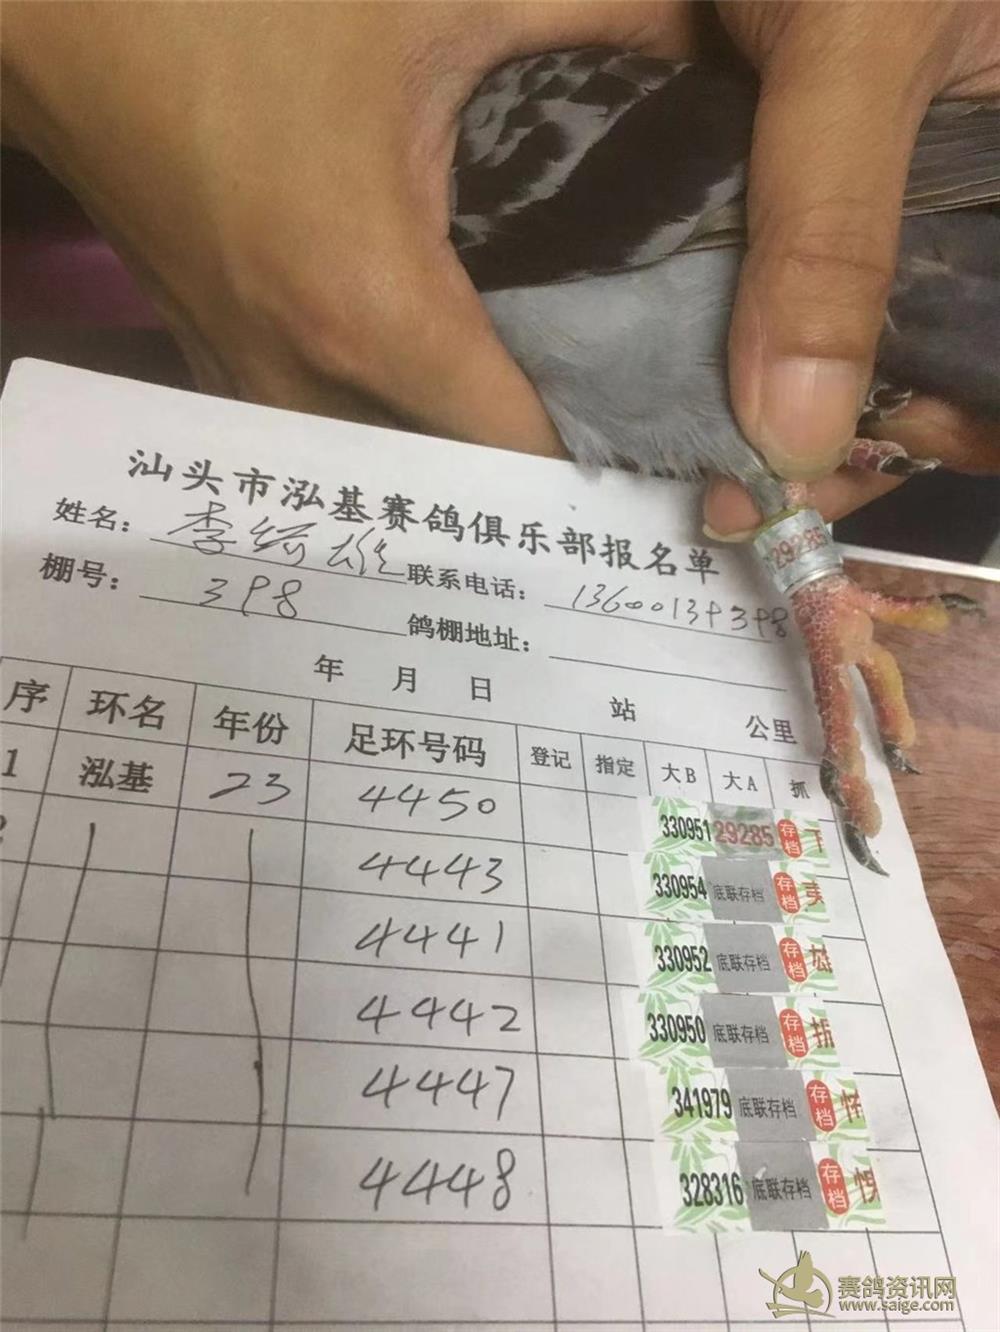 汕头市泓基赛鸽俱乐部报名单
姓名： 李绮雄 联系电话： 13600139398
棚号： 398 鸽棚地址：
年 月 日 站 公里
序 环名 年份 足环号码 登记 指定 大B 大A 抓
1 泓基 23 4450 330951 29285 存档
4443 330954 底联存档 存档
4441 330952 底联存档 存档 雄
4442 330950 底联存档 存档
4447 341979 底联存档 存档
4448 328316 底联存档 存档
29285
赛鸽资讯网
www.saige.com